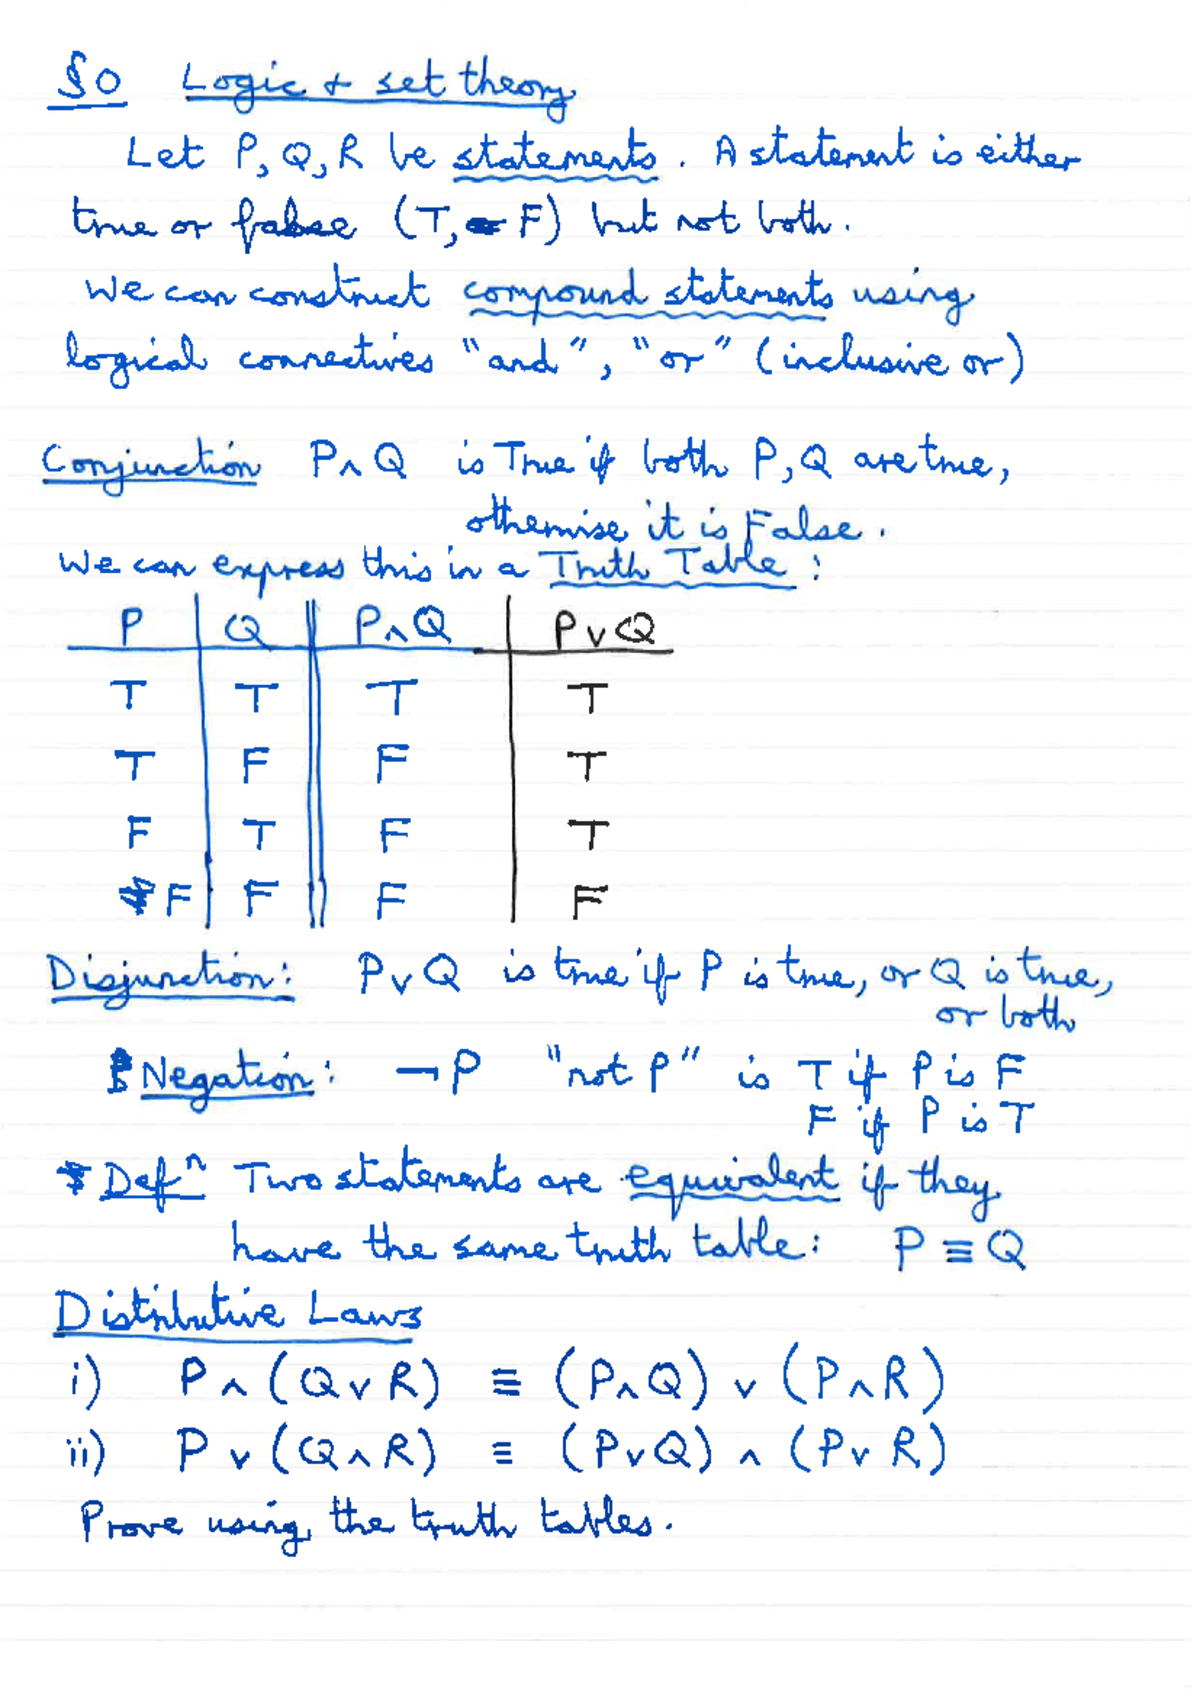 §0 Logic & set theory
Let P, Q, R be statements. A statement is either
true or false (T, F) but not both.
We can construct compound statements using
logical connectives "and", "or" (inclusive or)
Conjunction P∧Q is True if both P, Q are true,
otherwise it is False.
We can express this in a Truth Table:
P Q P∧Q P∨Q
T T T T
T F F T
F T F T
F F F F
Disjunction: P∨Q is true if P is true, or Q is true,
or both
Negation: ¬P "not P" is T if P is F
F if P is T
Defⁿ Two statements are equivalent if they
have the same truth table: P ≡ Q
Distributive Laws
i) P∧(Q∨R) ≡ (P∧Q) ∨ (P∧R)
ii) P∨(Q∧R) ≡ (P∨Q) ∧ (P∨R)
Prove using the truth tables.